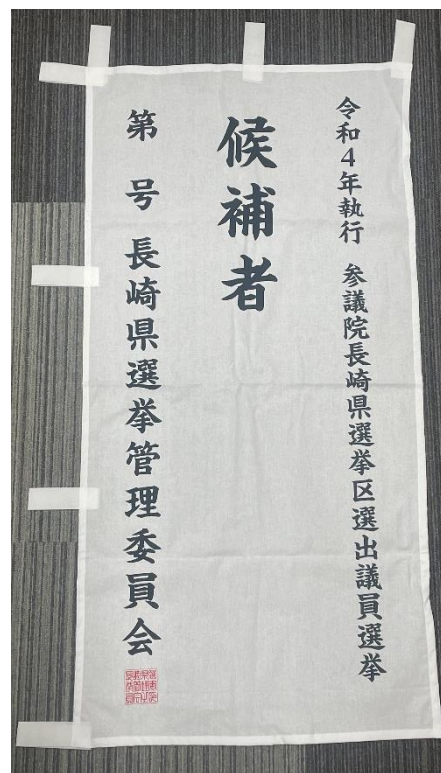 令和4年執行 参議院長崎県選挙区選出議員選挙
候補者
第 号 長崎県選挙管理委員会